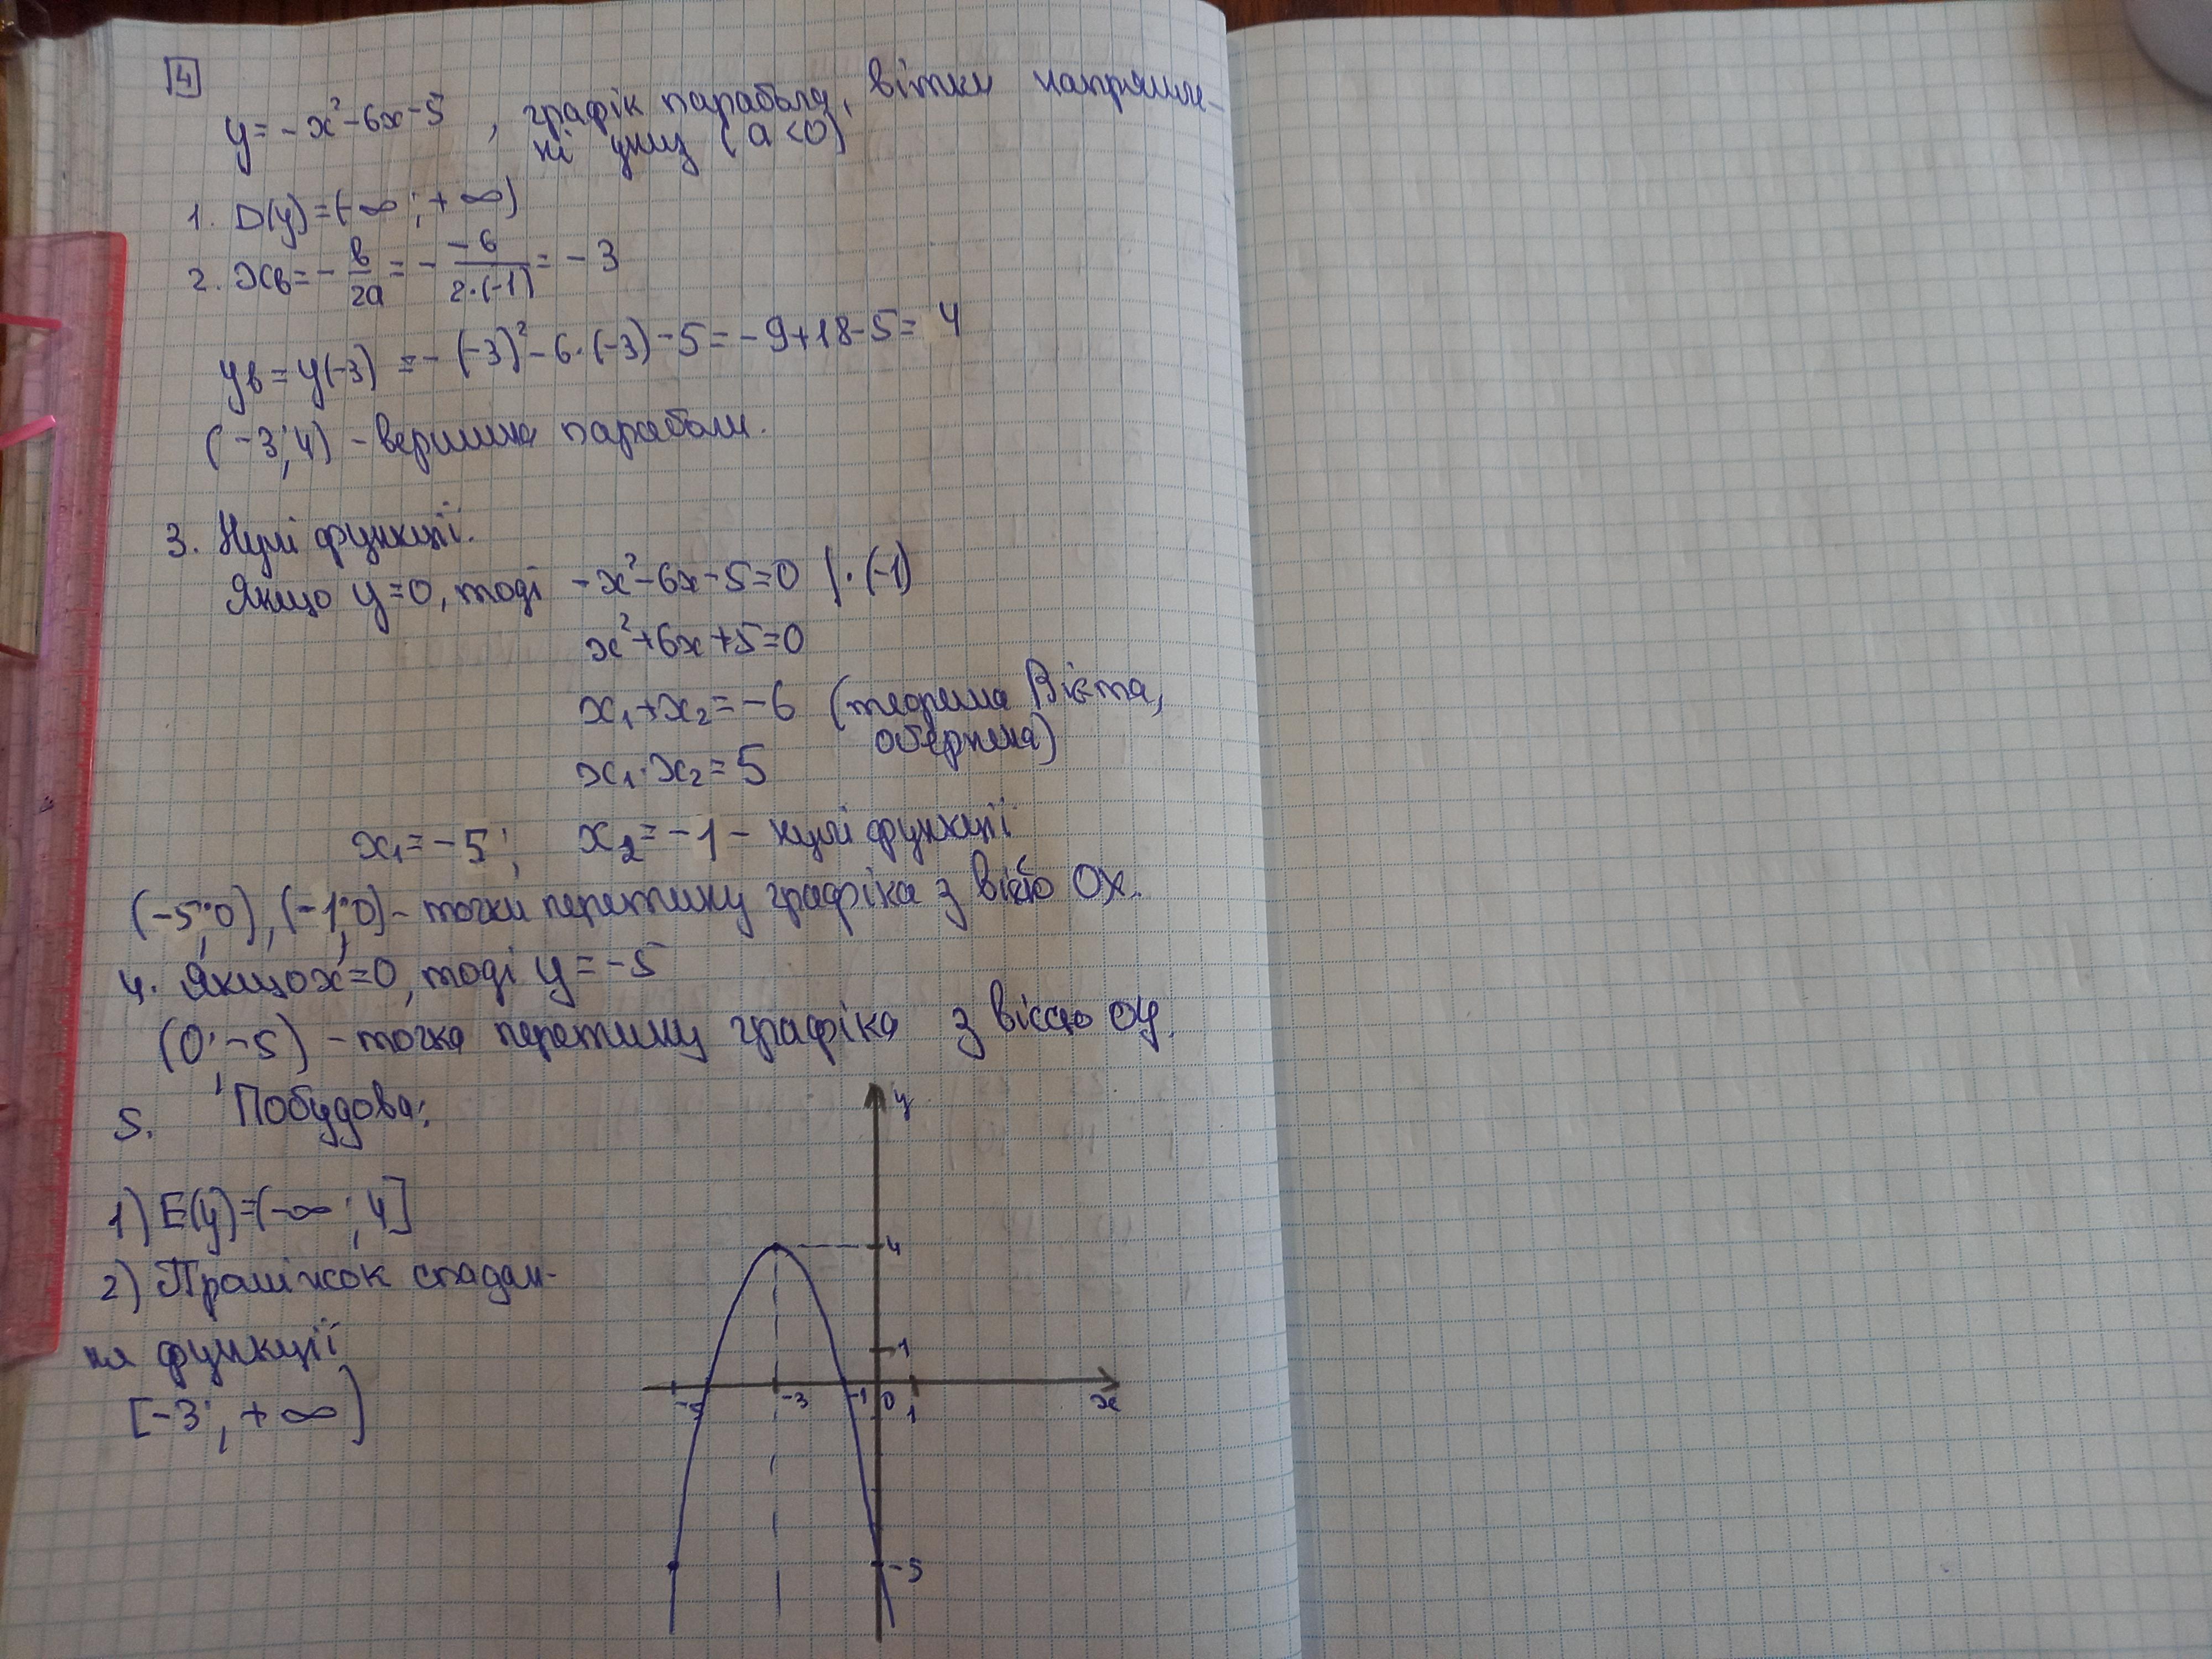 4
y = -x² - 6x - 5 , графік парабола, вітки напрямле-
ні униз (a < 0)
1. D(y) = (-∞ ; + ∞)
2. xв = - в/2a = - -6/2·(-1) = -3
yв = y(-3) = -(-3)² - 6·(-3) - 5 = -9 + 18 - 5 = 4
(-3; 4) - вершина параболи.
3. Нулі функції.
Якщо y = 0, тоді -x² - 6x - 5 = 0 |·(-1)
x² + 6x + 5 = 0
x₁ + x₂ = -6 (теорема Вієта,
обернена)
x₁·x₂ = 5
x₁ = -5 ; x₂ = -1 - нулі функції
(-5; 0), (-1; 0) - точки перетину графіка з вісю OX.
4. Якщо x = 0, тоді y = -5
(0; -5) - точка перетину графіка з віссю OY.
5. Побудова:
y
1) E(y) = (-∞ ; 4]
4
2) Проміжок спадан-
ня функції
1
[-3 ; + ∞)
-5 -3 -1 0 1 x
-5